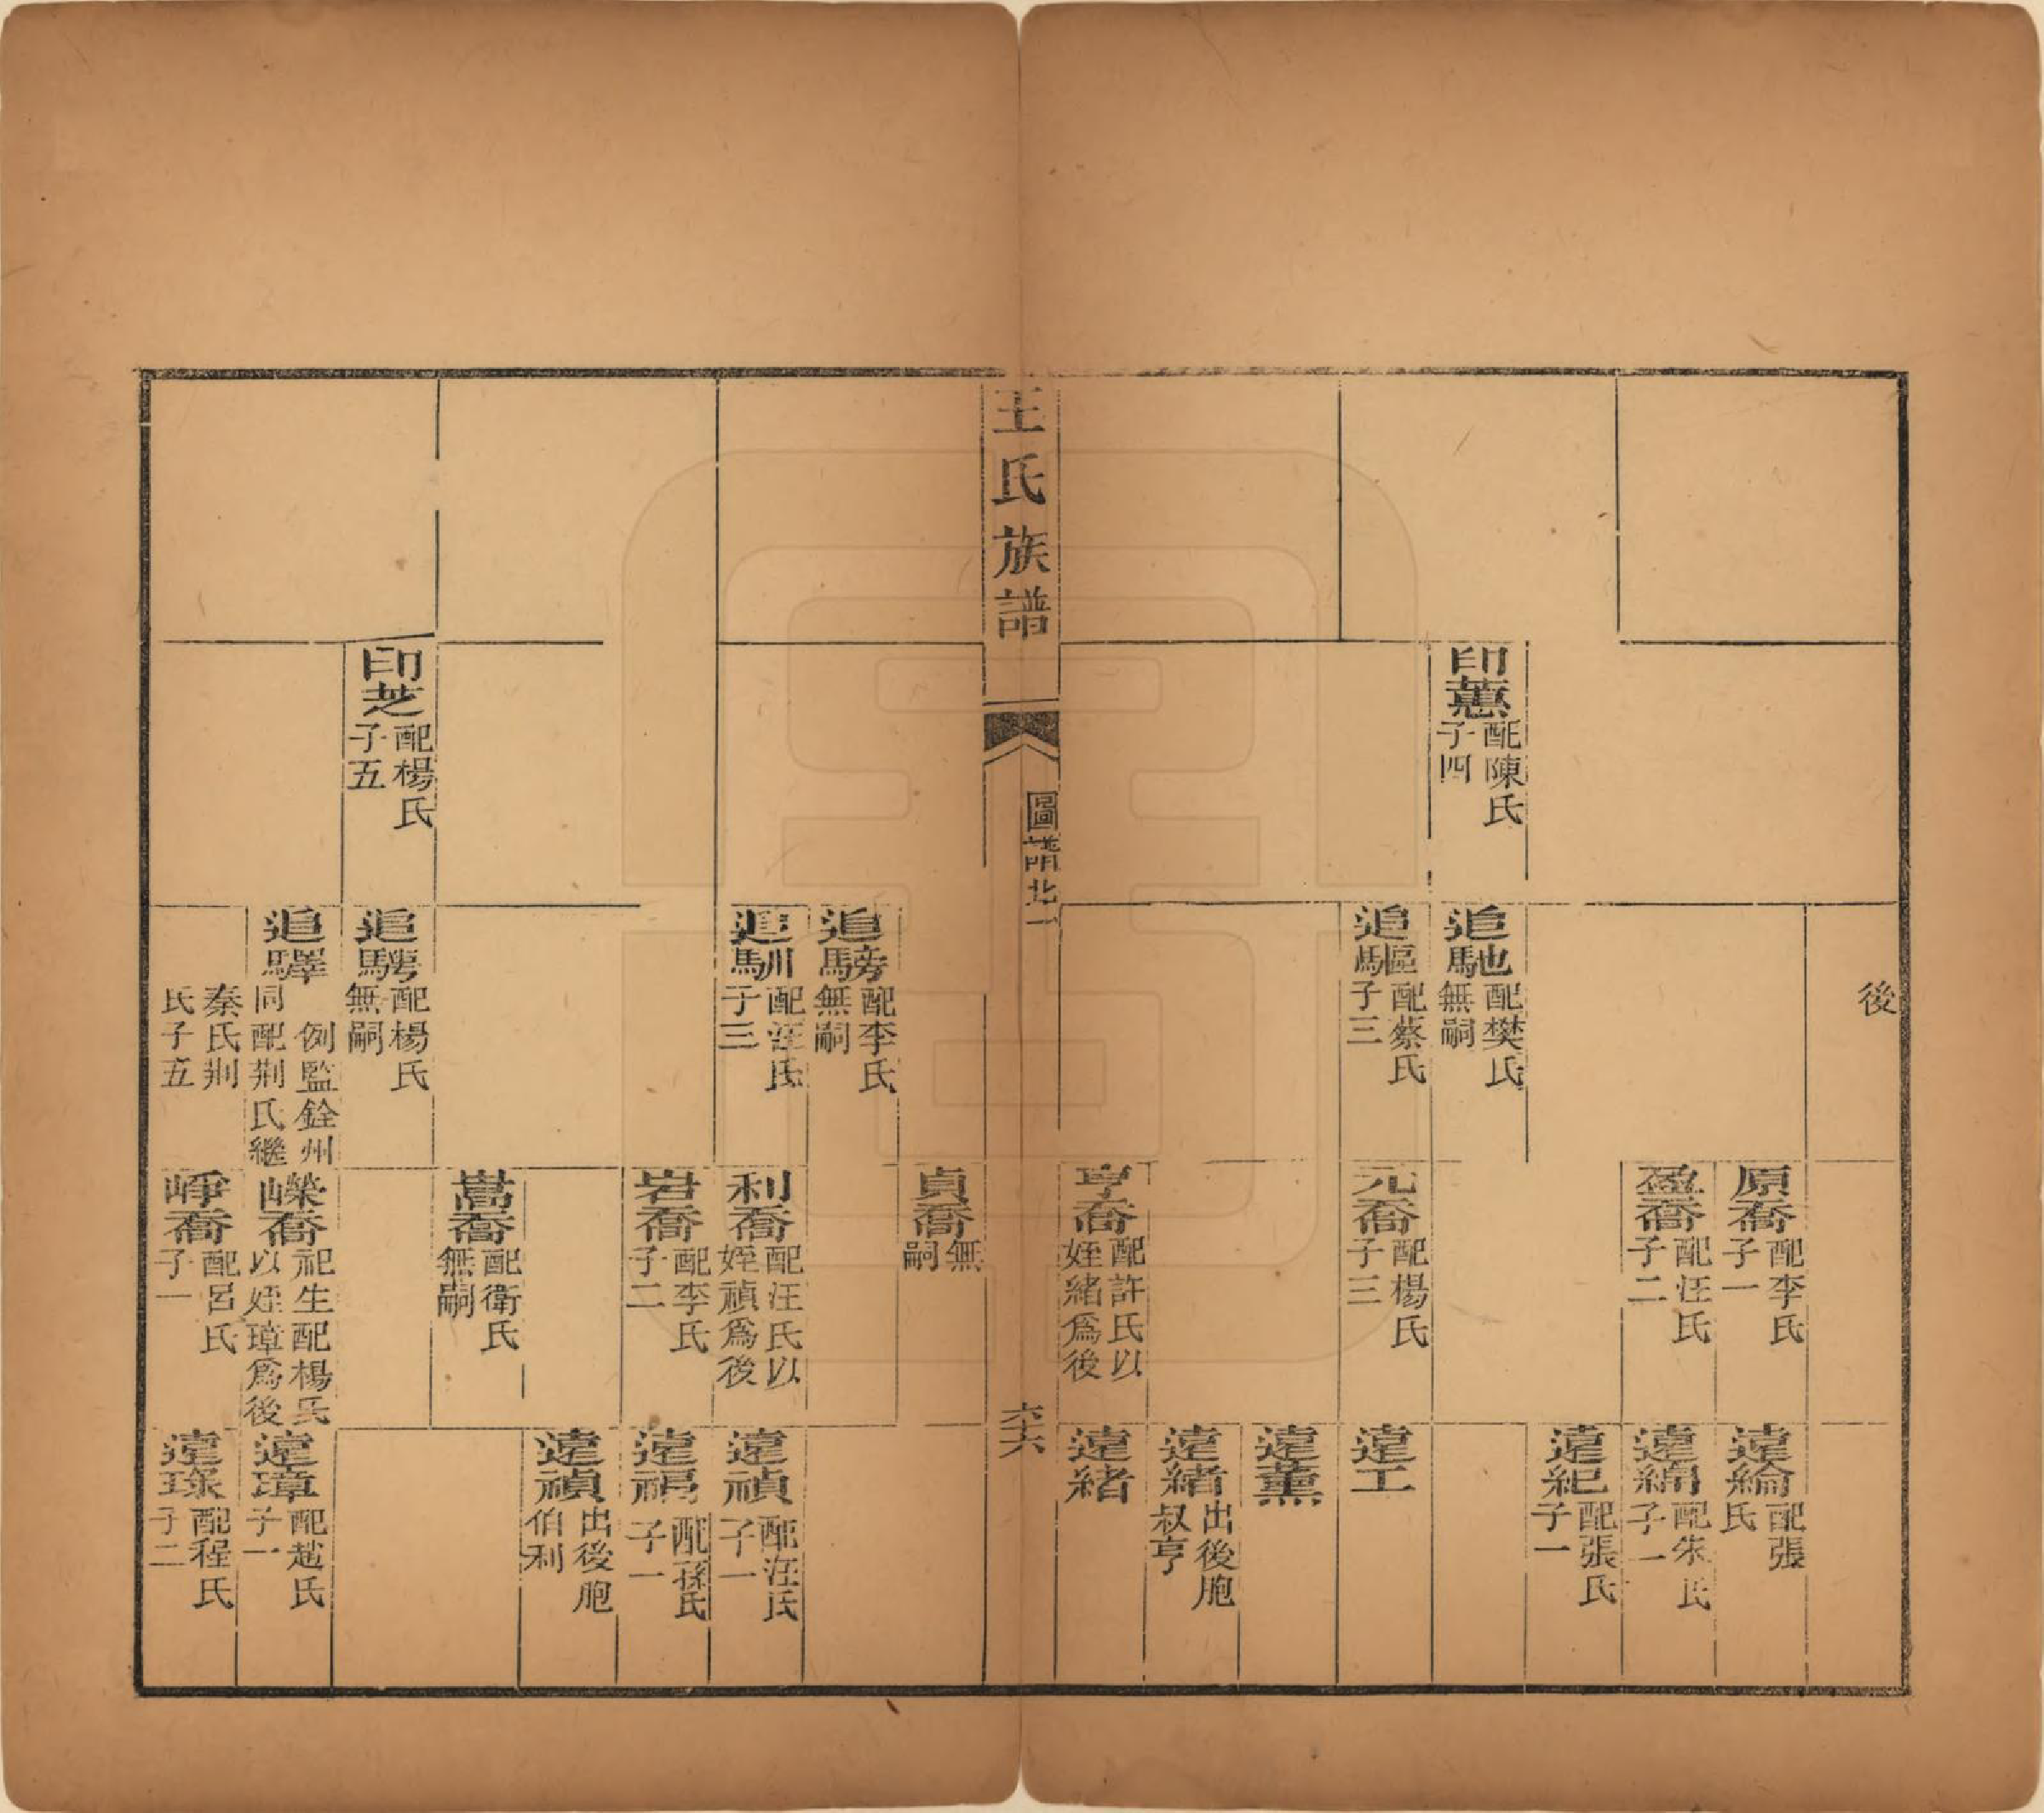 後
原喬 配李氏 子一
遠綸 配張氏
盈喬 配汪氏 子二
遠綿 配朱氏 子一
遠紀 配張氏 子一
印蕙 配陳氏 子四
追馳 配樊氏 無嗣
追驅 配蔡氏 子三
元喬 配楊氏 子三
遠工
遠薰
遠緒 出後胞叔亨
亨喬 配許氏以姪緒爲後
遠緒
王氏族譜
圖 北一
六六
貞喬 無嗣
追騯 配李氏 無嗣
追馴 配汪氏 子三
利喬 配汪氏以姪禎爲後
遠禎 配汪氏 子一
岩喬 配李氏 子二
遠福 配孫氏 子一
遠禎 出後胞伯利
嵩喬 配衛氏 無嗣
印芝 配楊氏 子五
追騁 配楊氏 無嗣
追驛 例監銓州同配荆氏繼秦氏荆氏子五
嶸喬 祀生配楊氏以姪璋爲後
遠璋 配趙氏 子一
崢喬 配呂氏 子一
遠琭 配程氏 子二